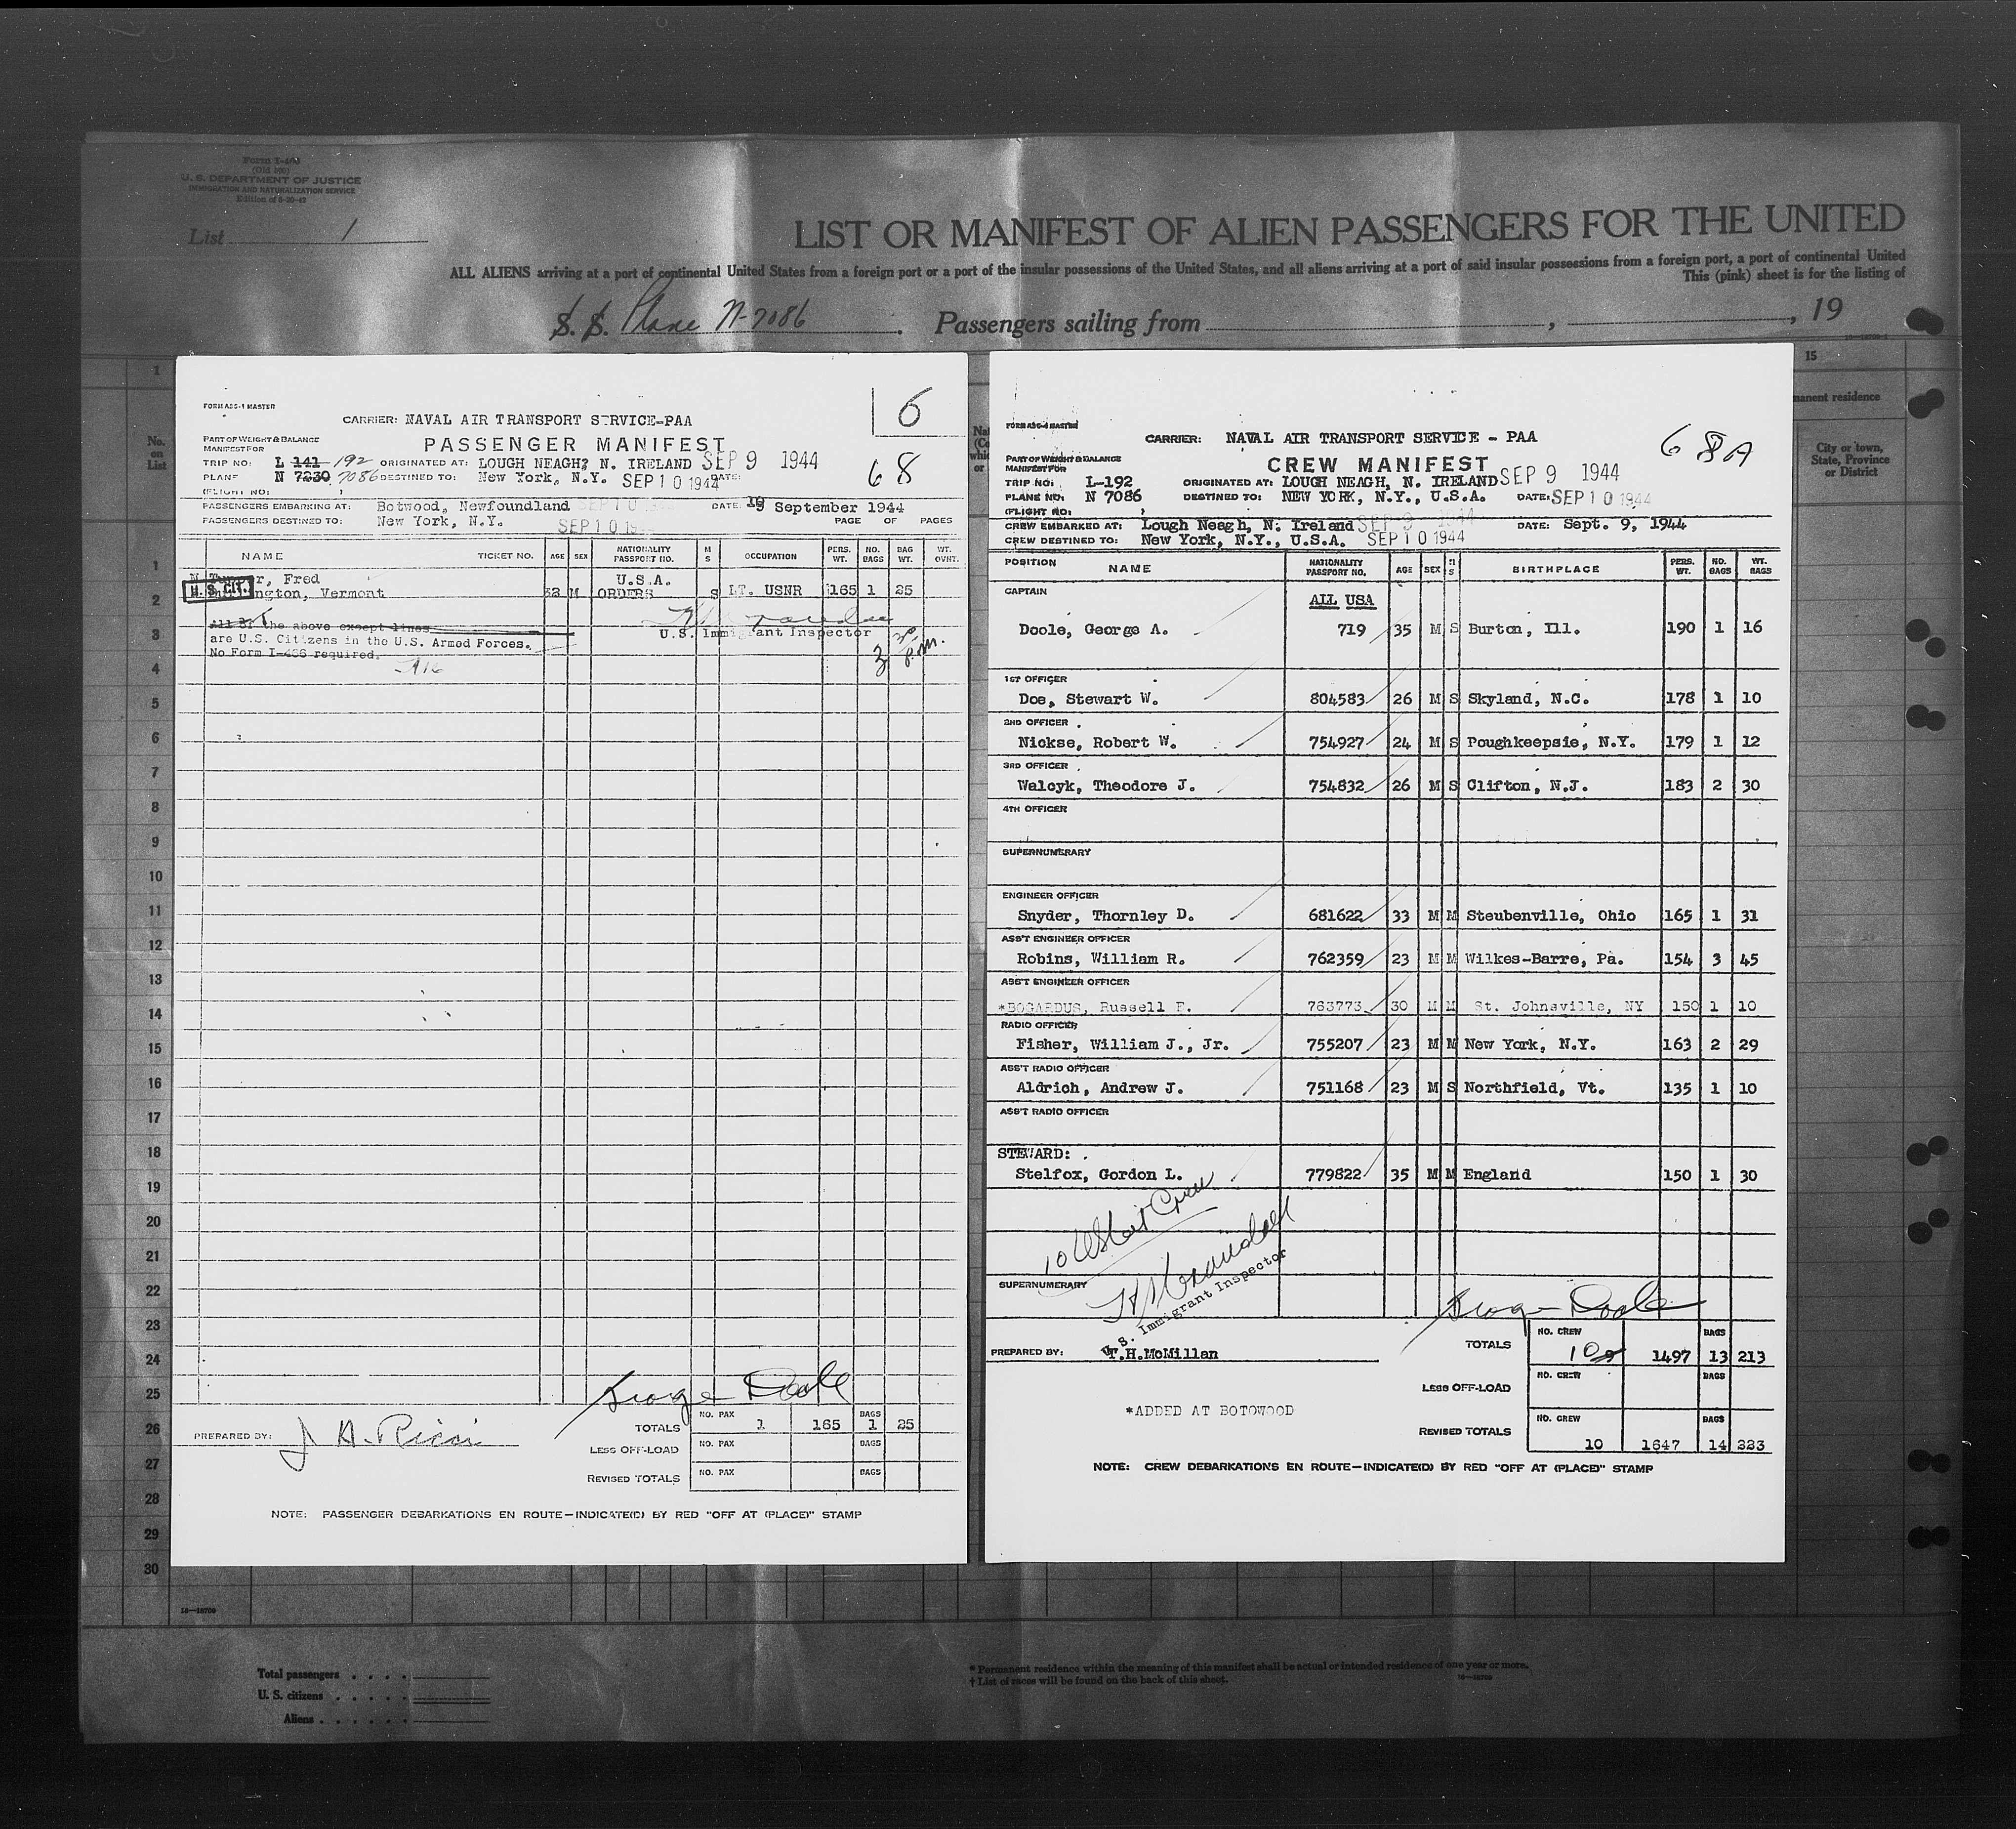 Form I-466
(Old 200)
U. S. DEPARTMENT OF JUSTICE
IMMIGRATION AND NATURALIZATION SERVICE
Edition of 8-20-42
List 1
LIST OR MANIFEST OF ALIEN PASSENGERS FOR THE UNITED
ALL ALIENS arriving at a port of continental United States from a foreign port or a port of the insular possessions of the United States, and all aliens arriving at a port of said insular possessions from a foreign port, a port of continental United
This (pink) sheet is for the listing of
S. S. Plane N-7086. Passengers sailing from , , 19
No. on List
1
FORM ABG-1 MASTER
6
CARRIER: NAVAL AIR TRANSPORT SERVICE-PAA
PART OF WEIGHT & BALANCE
MANIFEST FOR
PASSENGER MANIFEST
TRIP NO: L 141 192 ORIGINATED AT: LOUGH NEAGH, N. IRELAND SEP 9 1944
68
PLANE N 7230 7086 DESTINED TO: New York, N.Y. SEP 10 1944 DATE:
(FLIGHT NO: )
PASSENGERS EMBARKING AT: Botwood, Newfoundland DATE: September 1944
PASSENGERS DESTINED TO: New York, N.Y. SEP 10 PAGE OF PAGES
NAME TICKET NO. AGE SEX NATIONALITY PASSPORT NO. M S OCCUPATION PERS. WT. NO. BAGS BAG WT. WT. OVNT.
Fred U.S.A.
U. S. CIT. Vermont M ORDERS S LT. USNR 165 1 25
All the above except lines
U.S. Immigrant Inspector
are U.S. Citizens in the U.S. Armed Forces.
No Form I-466 required.
PREPARED BY: J A. Ricci
George Doole
TOTALS NO. PAX 1 165 BAGS 1 25
LESS OFF-LOAD NO. PAX BAGS
REVISED TOTALS NO. PAX BAGS
NOTE: PASSENGER DEBARKATIONS EN ROUTE—INDICATE(D) BY RED "OFF AT (PLACE)" STAMP
1
2
3
4
5
6
7
8
9
10
11
12
13
14
15
16
17
18
19
20
21
22
23
24
25
26
27
28
29
30
16—18709
FORM ABG-4 MASTER
68A
CARRIER: NAVAL AIR TRANSPORT SERVICE - PAA
PART OF WEIGHT & BALANCE
MANIFEST FOR
CREW MANIFEST SEP 9 1944
TRIP NO: L-192 ORIGINATED AT: LOUGH NEAGH, N. IRELAND
PLANE NO: N 7086 DESTINED TO: NEW YORK, N.Y., U.S.A. DATE: SEP 10 1944
(FLIGHT NO: )
CREW EMBARKED AT: Lough Neagh, N. Ireland SEP 9 1944 DATE: Sept. 9, 1944
CREW DESTINED TO: New York, N.Y., U.S.A. SEP 10 1944
POSITION NAME NATIONALITY PASSPORT NO. AGE SEX M S BIRTHPLACE PERS. WT. NO. BAGS WT. BAGS
CAPTAIN ALL USA
Doole, George A. 719 35 M S Burton, Ill. 190 1 16
1ST OFFICER
Doe, Stewart W. 804583 26 M S Skyland, N.C. 178 1 10
2ND OFFICER
Nickse, Robert W. 754927 24 M S Poughkeepsie, N.Y. 179 1 12
3RD OFFICER
Walcyk, Theodore J. 754832 26 M S Clifton, N.J. 183 2 30
4TH OFFICER
SUPERNUMERARY
ENGINEER OFFICER
Snyder, Thornley D. 681622 33 M M Steubenville, Ohio 165 1 31
ASS'T ENGINEER OFFICER
Robins, William R. 762359 23 M M Wilkes-Barre, Pa. 154 3 45
ASS'T ENGINEER OFFICER
*BOGARDUS, Russell F. 763773 30 M M St. Johnsville, NY 150 1 10
RADIO OFFICER
Fisher, William J., Jr. 755207 23 M M New York, N.Y. 163 2 29
ASS'T RADIO OFFICER
Aldrich, Andrew J. 751168 23 M S Northfield, Vt. 135 1 10
ASS'T RADIO OFFICER
STEWARD:
Stelfox, Gordon L. 779822 35 M M England 150 1 30
10 Crew
SUPERNUMERARY
U. S. Immigrant Inspector
George Doole
PREPARED BY: T.H.McMillan
TOTALS NO. CREW 10 1497 BAGS 13 213
LESS OFF-LOAD NO. CREW BAGS
*ADDED AT BOTOWOOD
REVISED TOTALS NO. CREW 10 1647 BAGS 14 223
NOTE: CREW DEBARKATIONS EN ROUTE—INDICATE(D) BY RED "OFF AT (PLACE)" STAMP
15
manent residence
City or town, State, Province or District
Total passengers
U. S. citizens
Aliens
* Permanent residence within the meaning of this manifest shall be actual or intended residence of one year or more.
† List of races will be found on the back of this sheet.
16—18709